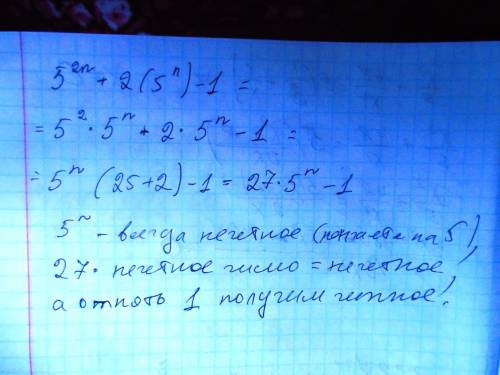 5²ⁿ + 2(5ⁿ) - 1 =
= 5² · 5ⁿ + 2 · 5ⁿ - 1 =
= 5ⁿ (25+2) - 1 = 27 · 5ⁿ - 1
5ⁿ - всегда нечетное ( на 5),
27 · нечетное число = нечетное,
а отнять 1 получим четное!